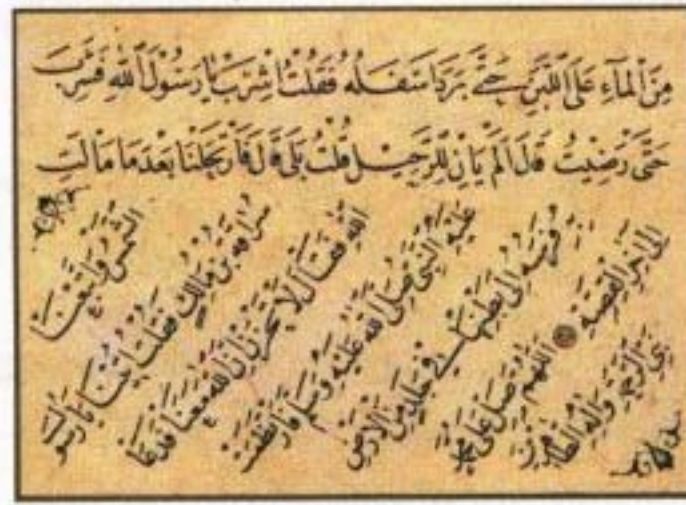 مِنَ الْمَاءِ عَلَى اللَّبَنِ حَتَّى بَرَدَ اَسْفَلُهُ فَقُلْتُ اشْرَبْ يَا رَسُولَ اللّٰهِ فَشَرِبَ
حَتَّى رَضِيتُ قَالَ اَلَمْ يَأْنِ لِلرَّحِيلِ قُلْتُ بَلَى قَالَ فَارْتَحَلْنَا بَعْدَ مَا مَالَتِ
الشَّمْسُ وَاتَّبَعَنَا
سُرَاقَةُ بْنُ مَالِكٍ فَقُلْتُ اُتِينَا يَا رَسُولَ
اللّٰهِ فَقَالَ لَا تَحْزَنْ اِنَّ اللّٰهَ مَعَنَا فَدَعَا
عَلَيْهِ النَّبِيُّ صَلَّى اللّٰهُ عَلَيْهِ وَسَلَّمَ فَارْتَطَمَتْ
بِهِ فَرَسُهُ اِلَى بَطْنِهَا فِي جَلَدٍ مِنَ الْاَرْضِ
اِلَى اٰخِرِ الْقِصَّةِ اَللّٰهُمَّ صَلِّ عَلَى مُحَمَّدٍ
نَبِيِّ الرَّحْمَةِ وَاٰلِهِ الطَّاهِرِينَ